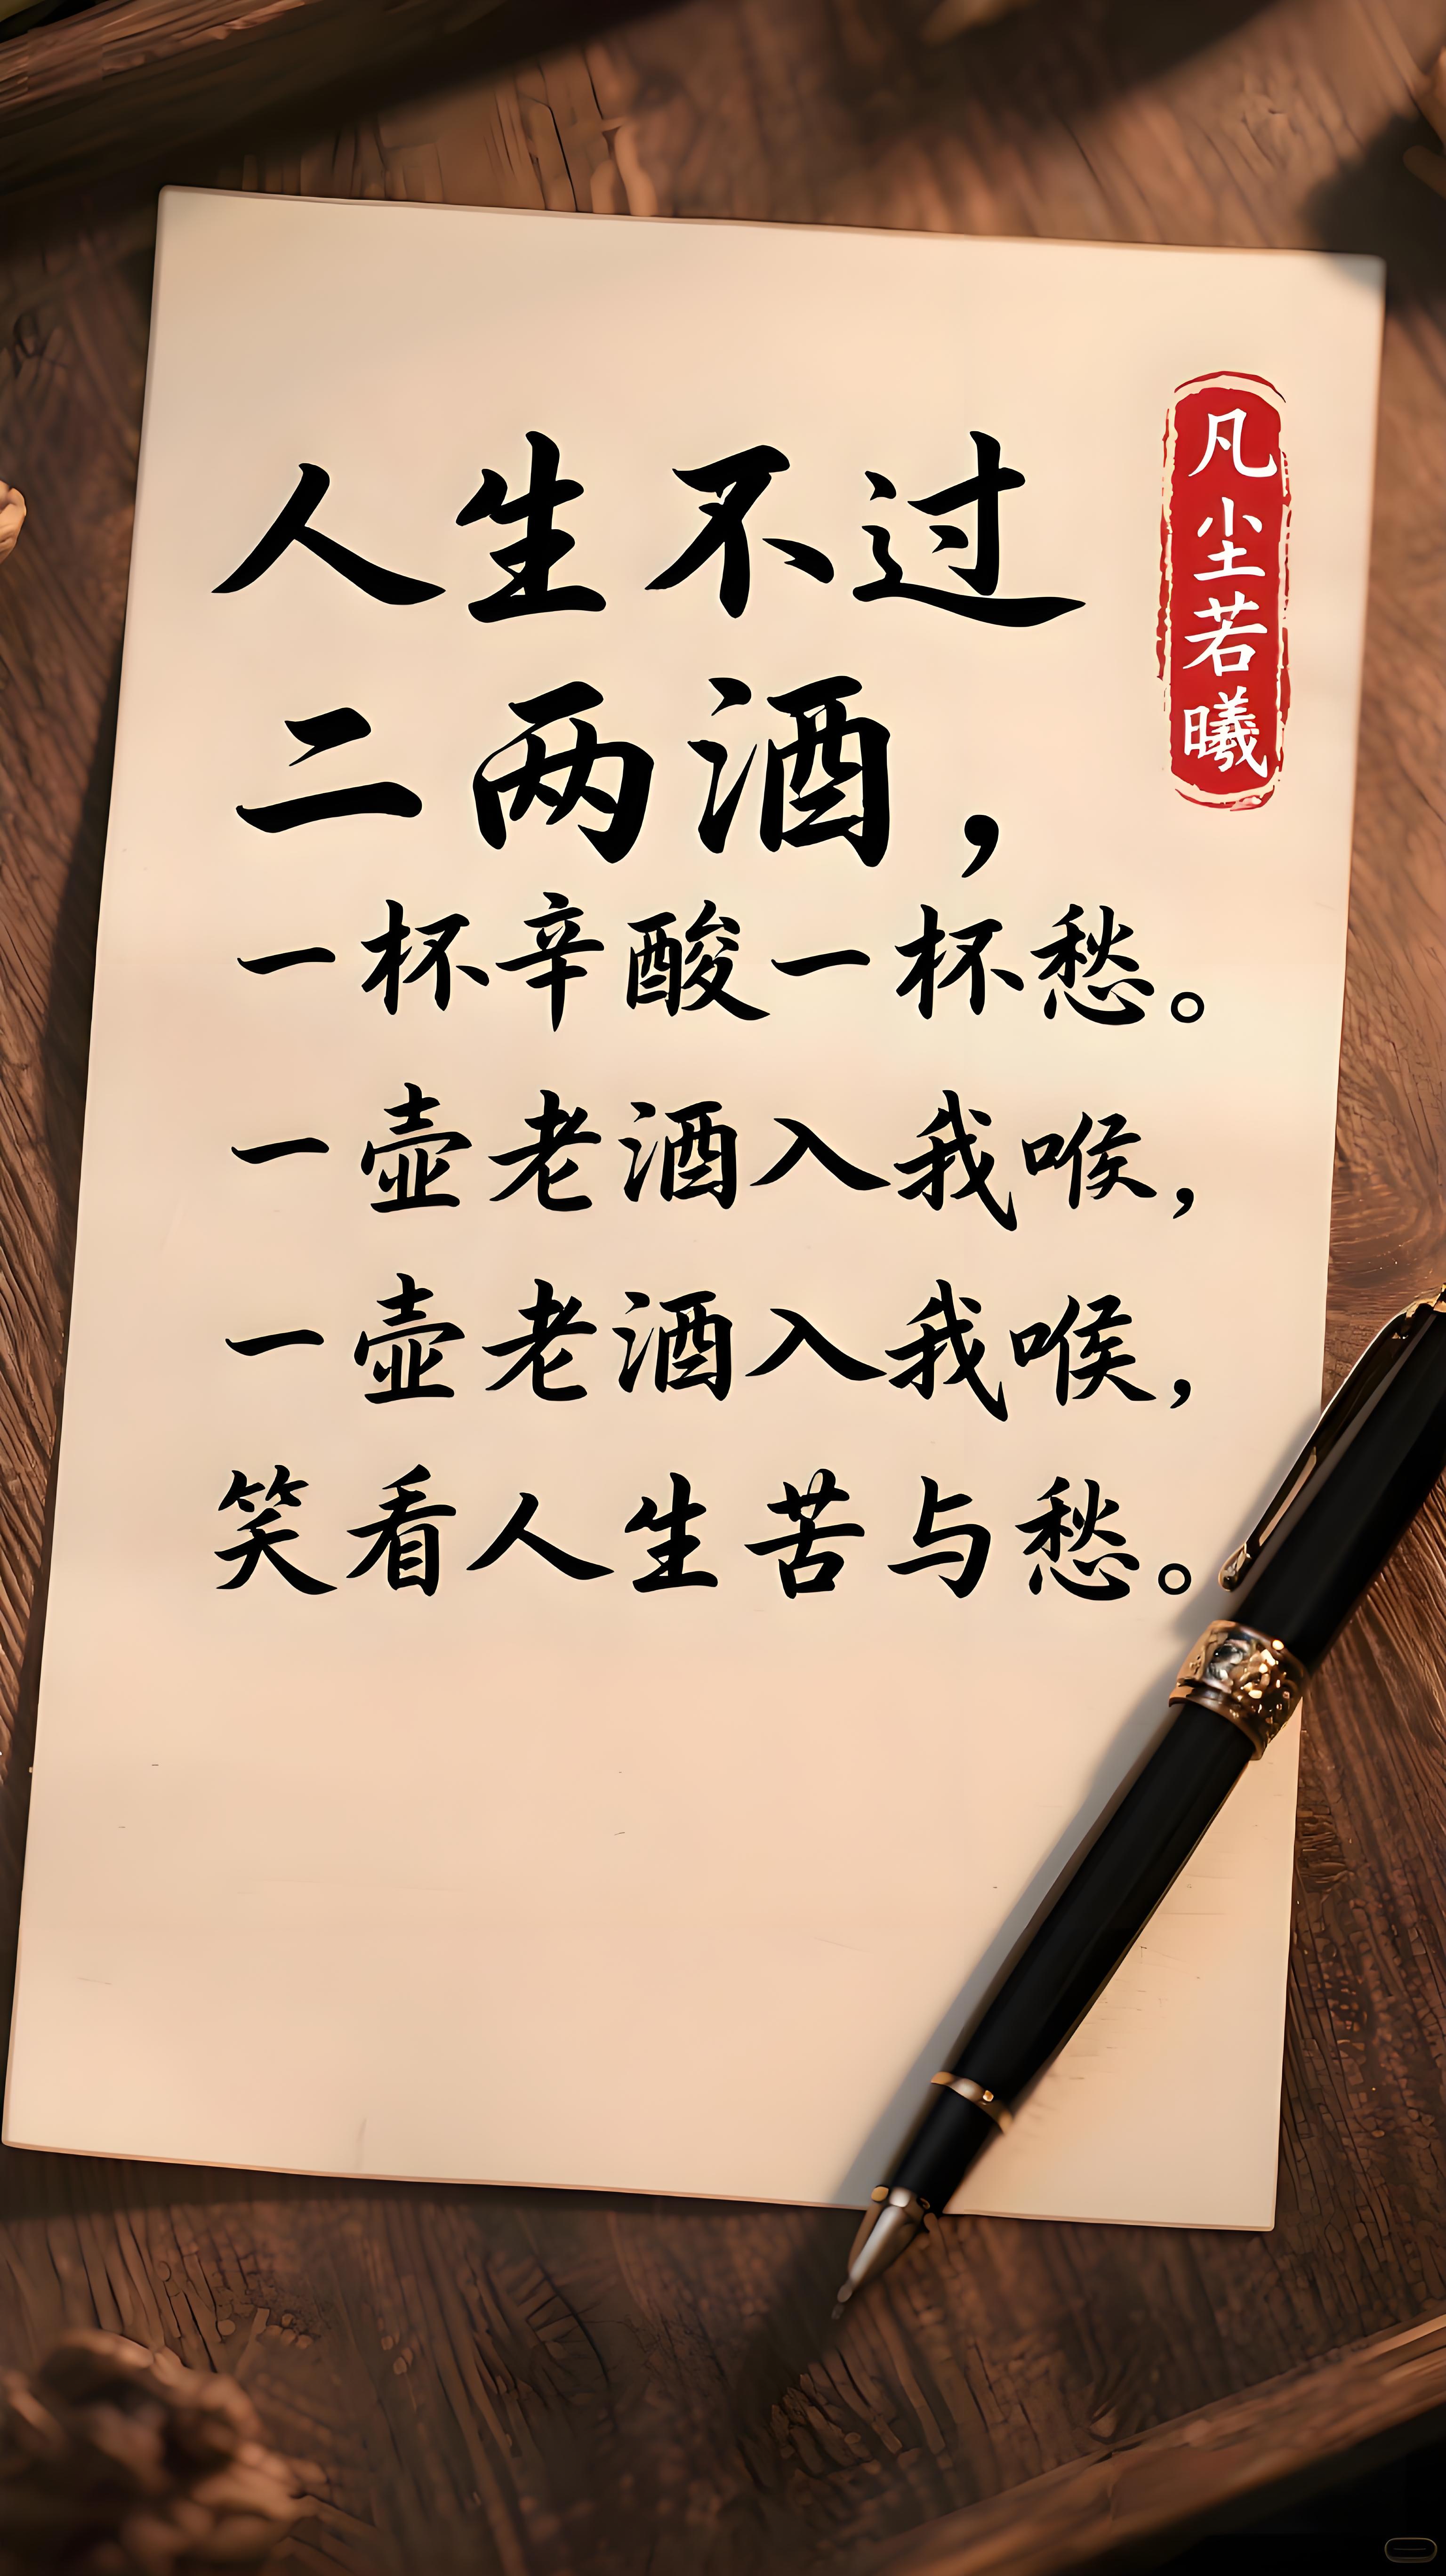 人生不过
二两酒，
一杯辛酸一杯愁。
一壶老酒入我喉，
一壶老酒入我喉，
笑看人生苦与愁。
凡尘若曦